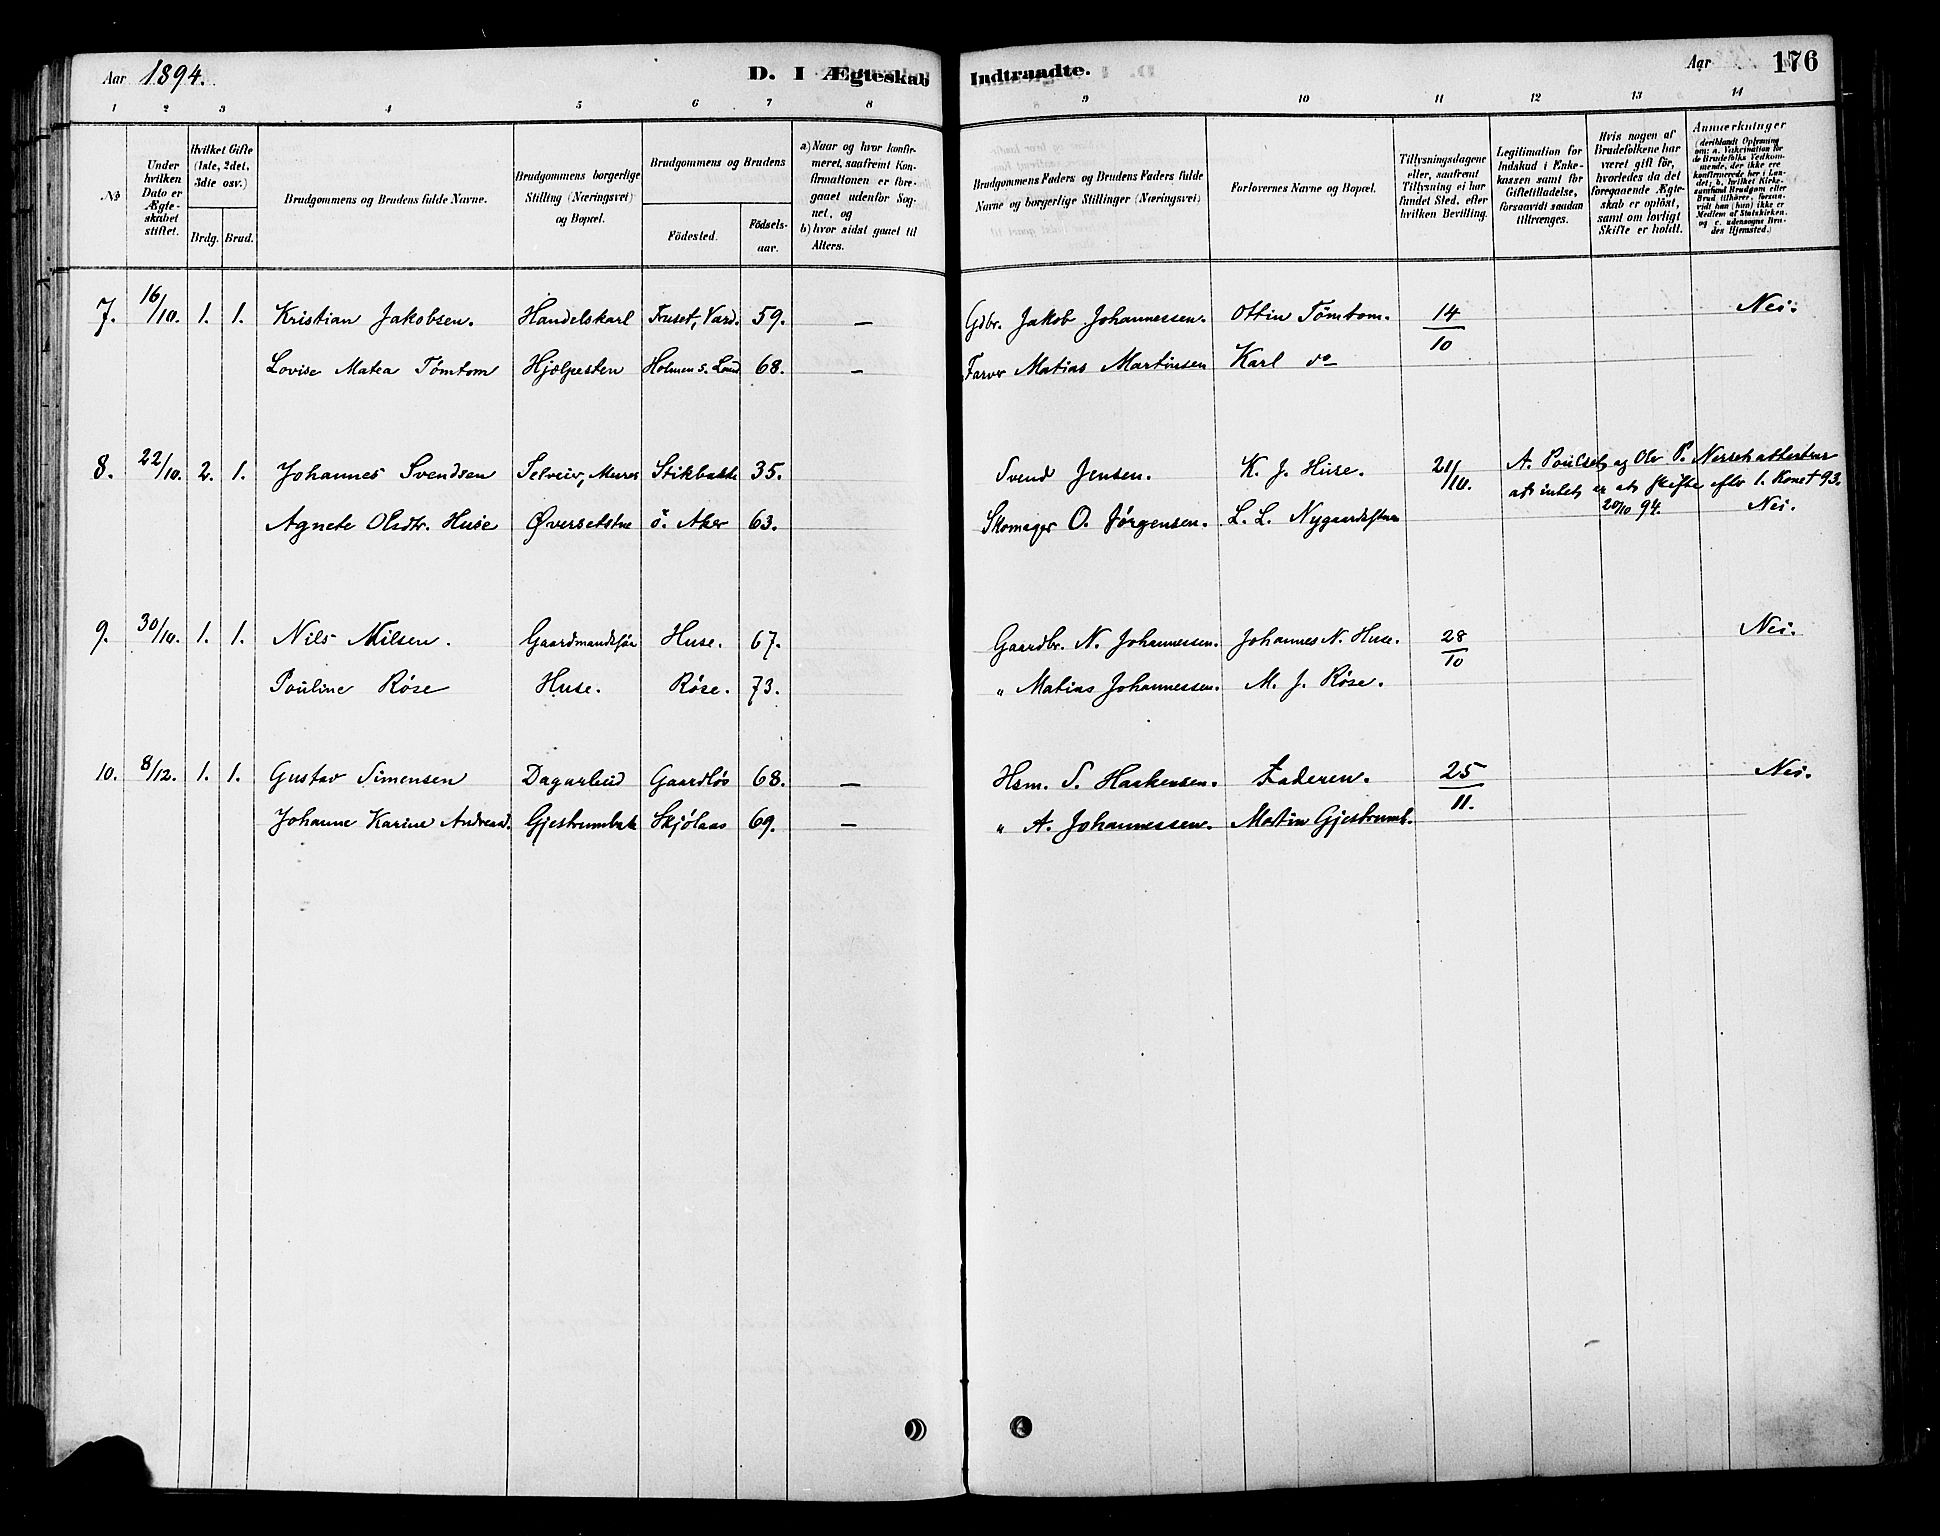 Aar 1894. D. I Ægteskab Indtraadte. Aar 176
1 2 3 4 5 6 7 8 9 10 11 12 13 14
No
Under hvilken Dato er Ægteskabet stiftet.
Hvilket Gifte (1ste, 2det, 3die osv.)
Brdg. Brud.
Brudgommens og Brudens fulde Navne.
Brudgommens borgerlige Stilling (Næringsvei) og Bopæl.
Brudgommens og Brudens
Födested. Födsels-aar.
a) Naar og hvor konfirmeret, saafremt Konfirmationen er foregaaet udenfor Sognet, og
b) hvor sidst gaaet til Alters.
Brudgommens Faders og Brudens Faders fulde Navne og borgerlige Stillinger (Næringsvei)
Forlovernes Navne og Bopæl.
Tillysningsdagene eller, saafremt Tillysning ei har fundet Sted, efter hvilken Bevilling.
Legitimation for Indskud i Enkekassen samt for Giftetilladelse, forsaavidt saadan tiltrænges.
Hvis nogen af Brudefolkene har været gift för, hvorledes da det foregaaende Ægteskab er oplöst, samt om lovligt Skifte er holdt.
Anmærkninger (deriblandt Oplysning om: a. Vakcination for de Brudefolks Vedkommende, der ikke ere konfirmerede her i Landet; b. hvilket Kirkesamfund Brudgom eller Brud tilhörer, forsaavidt han (hun) ikke er Medlem af Statskirken, og c. udensogns Brudes Hjemsted.)
7. 16/10. 1. 1. Kristian Jakobsen. Handelskarl Fruset, Vard. 59. — Gdbr. Jakob Johannessen. Ottin Tömtom. 14/10 Nei.
Lovise Matea Tömtom Hjælpesten Holmen s. Land 68. — Farver Matias Martinsen Karl do
8. 22/10. 2. 1. Johannes Svendsen Selveier, Murer Stikbakke 35. Svend Jensen. K. J. Huse. 21/10. A. Poulset og Ole P. Nerset attesterer
at intet er at skifte efter 1. Kone † 93.
Agnete Olsdtr. Huse Øversetstue ö. Aker 63. Skomager O. Jörgensen. L. L. Nygaardstuen 20/10 94. Nei.
9. 30/10. 1. 1. Nils Nilsen. Gaardmandssön Huse. 67. Gaardbr. N. Johannessen. Johannes N. Huse. 28/10 Nei.
Pouline Röse Huse. Röse. 73. " Matias Johannessen. M. J. Röse.
10. 8/12. 1. 1. Gustav Simensen Dagarbeid Gaardlös 68. — Hsm. S. Haakensen. Faderen. 25/11. Nei.
Johanne Karine Andreasd. Gjestrumbak Skjölaas 69. — " A. Johannessen. Martin Gjestrumb.